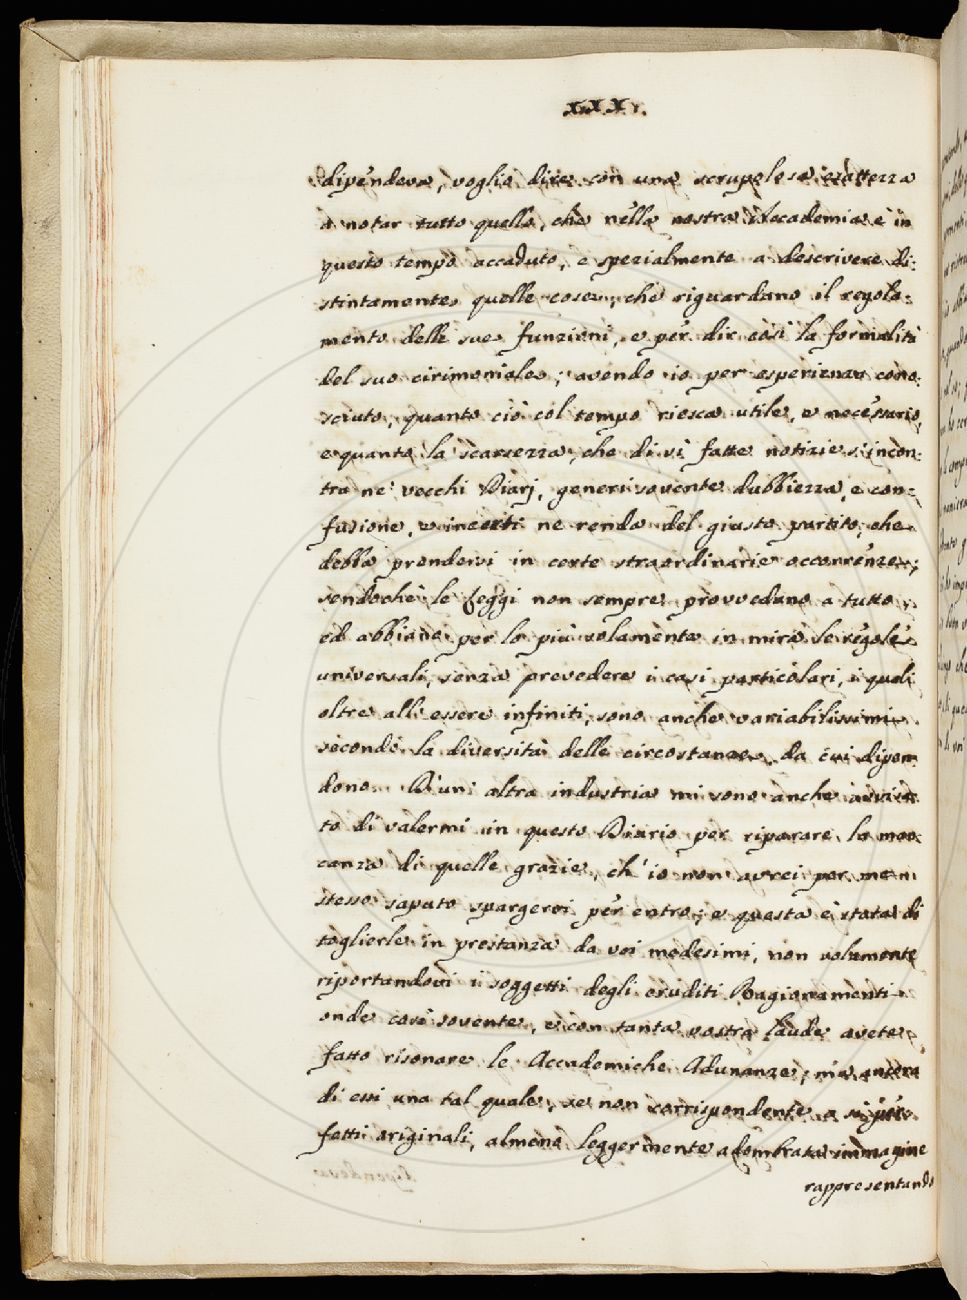 XXX
dipendeva, voglio dire con una scrupolosa esattezza
a notar tutto quello, che nella nostra Accademia è in
questo tempo accaduto, e spezialmente a descrivere di:
stintamente quelle cose, che riguardano il regola:
mento delle sue funzioni, e per dir così la formalità
del suo cirimoniale; avendo io per esperienza cono:
sciuto, quanto ciò col tempo riesca utile, e necessario,
e quanto la scarsezza, che di sì fatte notizie s'incon:
tra ne' vecchi Diarj, generi sovente dubbiezza, e con:
fusione, e incerti ne renda del giusto partito, che
debba prendersi in certe straordinarie occorrenze;
sendochè le Leggi non sempre provvedano a tutto,
ed abbiano per lo più solamente in mira le regole
universali, senza prevedere i casi particolari, i quali
oltre all'essere infiniti, sono anche variabilissimi
secondo la diversità delle circostanze, da cui dipen
dono. D'un' altra industria mi sono anche avvisa
to di valermi in questo Diario per riparare la man:
canza di quelle grazie, ch' io non avrei per me
stesso saputo spargervi per entro; e questa è stata di
toglierle in prestanza da voi medesimi, non solamente
riportandovi i soggetti degli eruditi Ragionamenti
onde così sovente, e con tanta vostra laude avete
fatto risonare le Accademiche Adunanze; ma ancora
di essi una tal quale, se non corrispondente a sì per
fetti originali, almeno leggermente adombrata immagine
rappresentando